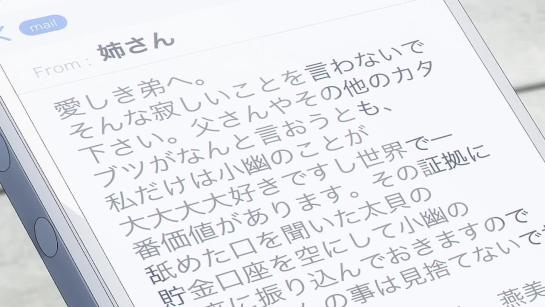 mail
From : 姉さん
愛しき弟へ。
そんな寂しいことを言わないで
下さい。父さんやその他のカタ
ブツがなんと言おうとも、
私だけは小幽のことが
大大大大好きですし世界で一
番価値があります。その証拠に
舐めた口を聞いた太貝の
貯金口座を空にして小幽の
に振り込んでおきますので
の事は見捨てないで
燕美